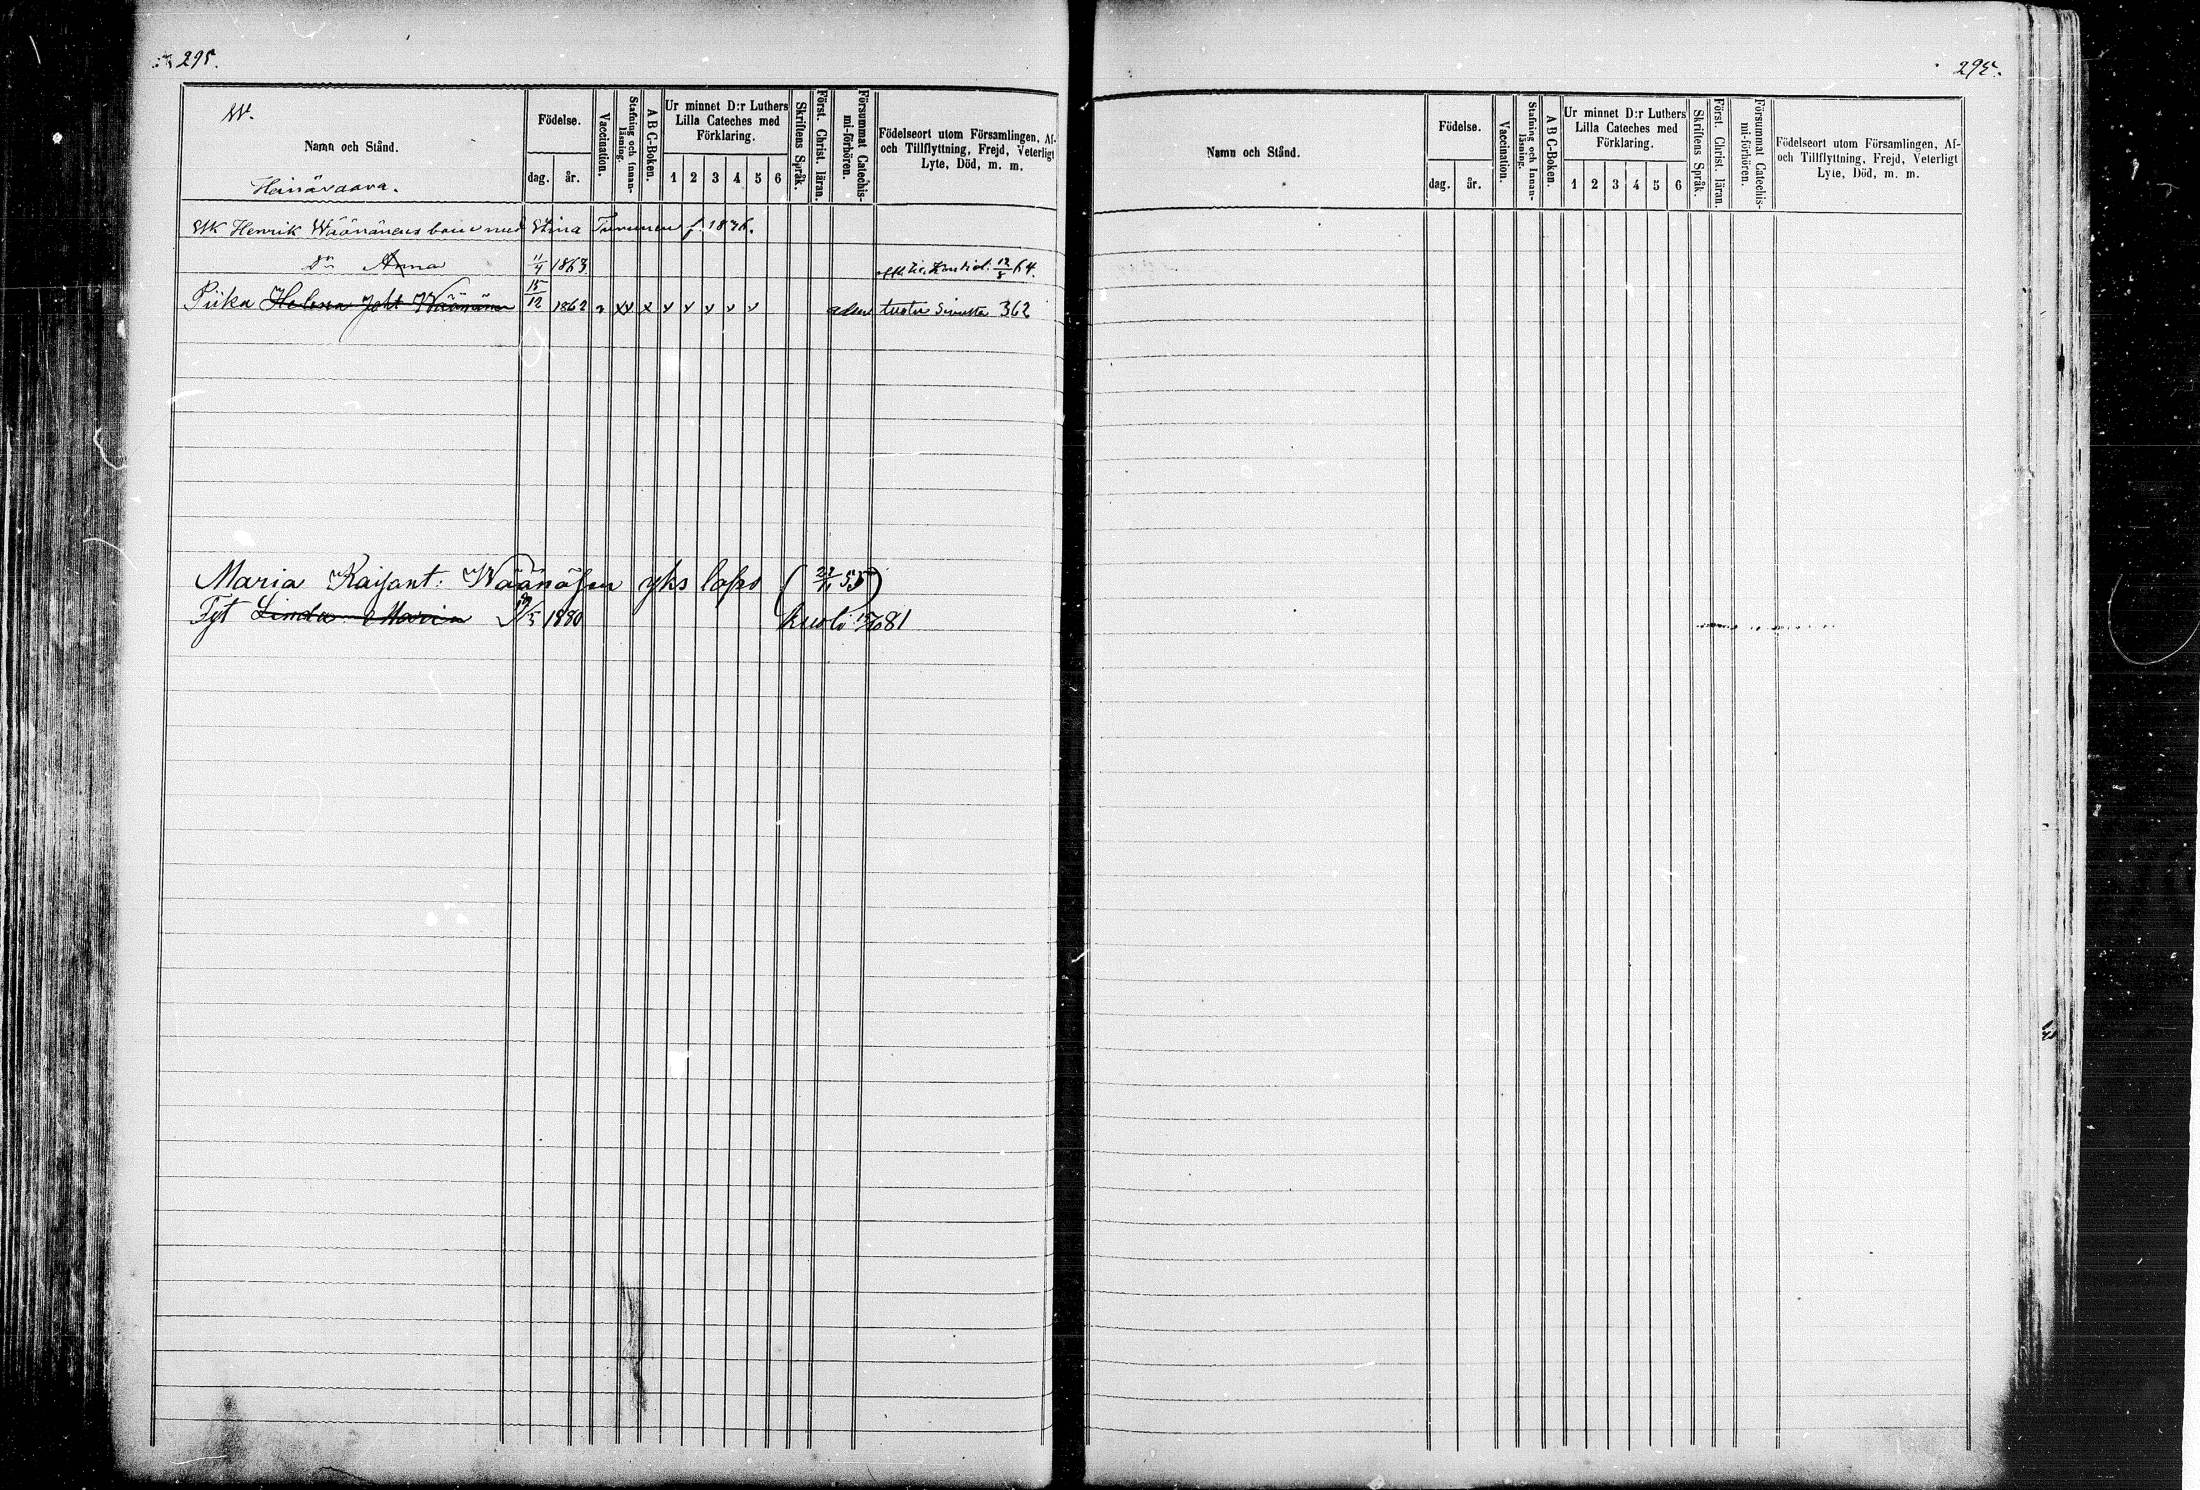 295.
W.
Namn och Stånd.
Heinävaara.
Födelse.
dag. år.
Vaccination.
Stafning och Innanläsning.
A B C-Boken.
Ur minnet D:r Luthers
Lilla Cateches med
Förklaring.
1 2 3 4 5 6
Skriftens Språk.
Först. Christ. läran.
Försummat Catechismi-förhören.
Födelseort utom Församlingen, Af-
och Tillflyttning, Frejd, Veterligt
Lyte, Död, m. m.
Henrik Wäänänens med Stina Turunen f. 1836.
Dr Anna 11/4 1863 12/5 64.
Piika Helena Joht Wäänänen 15/12 1862 v xx x v v v v v tusta sivulta 362
Maria Kaisant: Wäänäsen yks laps (55)
Tyt Linda Maria /5 1880 kuoli 81
295.
Namn och Stånd.
Födelse.
dag. år.
Vaccination.
Stafning och Innanläsning.
A B C-Boken.
Ur minnet D:r Luthers
Lilla Cateches med
Förklaring.
1 2 3 4 5 6
Skriftens Språk.
Först. Christ. läran.
Försummat Catechismi-förhören.
Födelseort utom Församlingen, Af-
och Tillflyttning, Frejd, Veterligt
Lyte, Död, m. m.